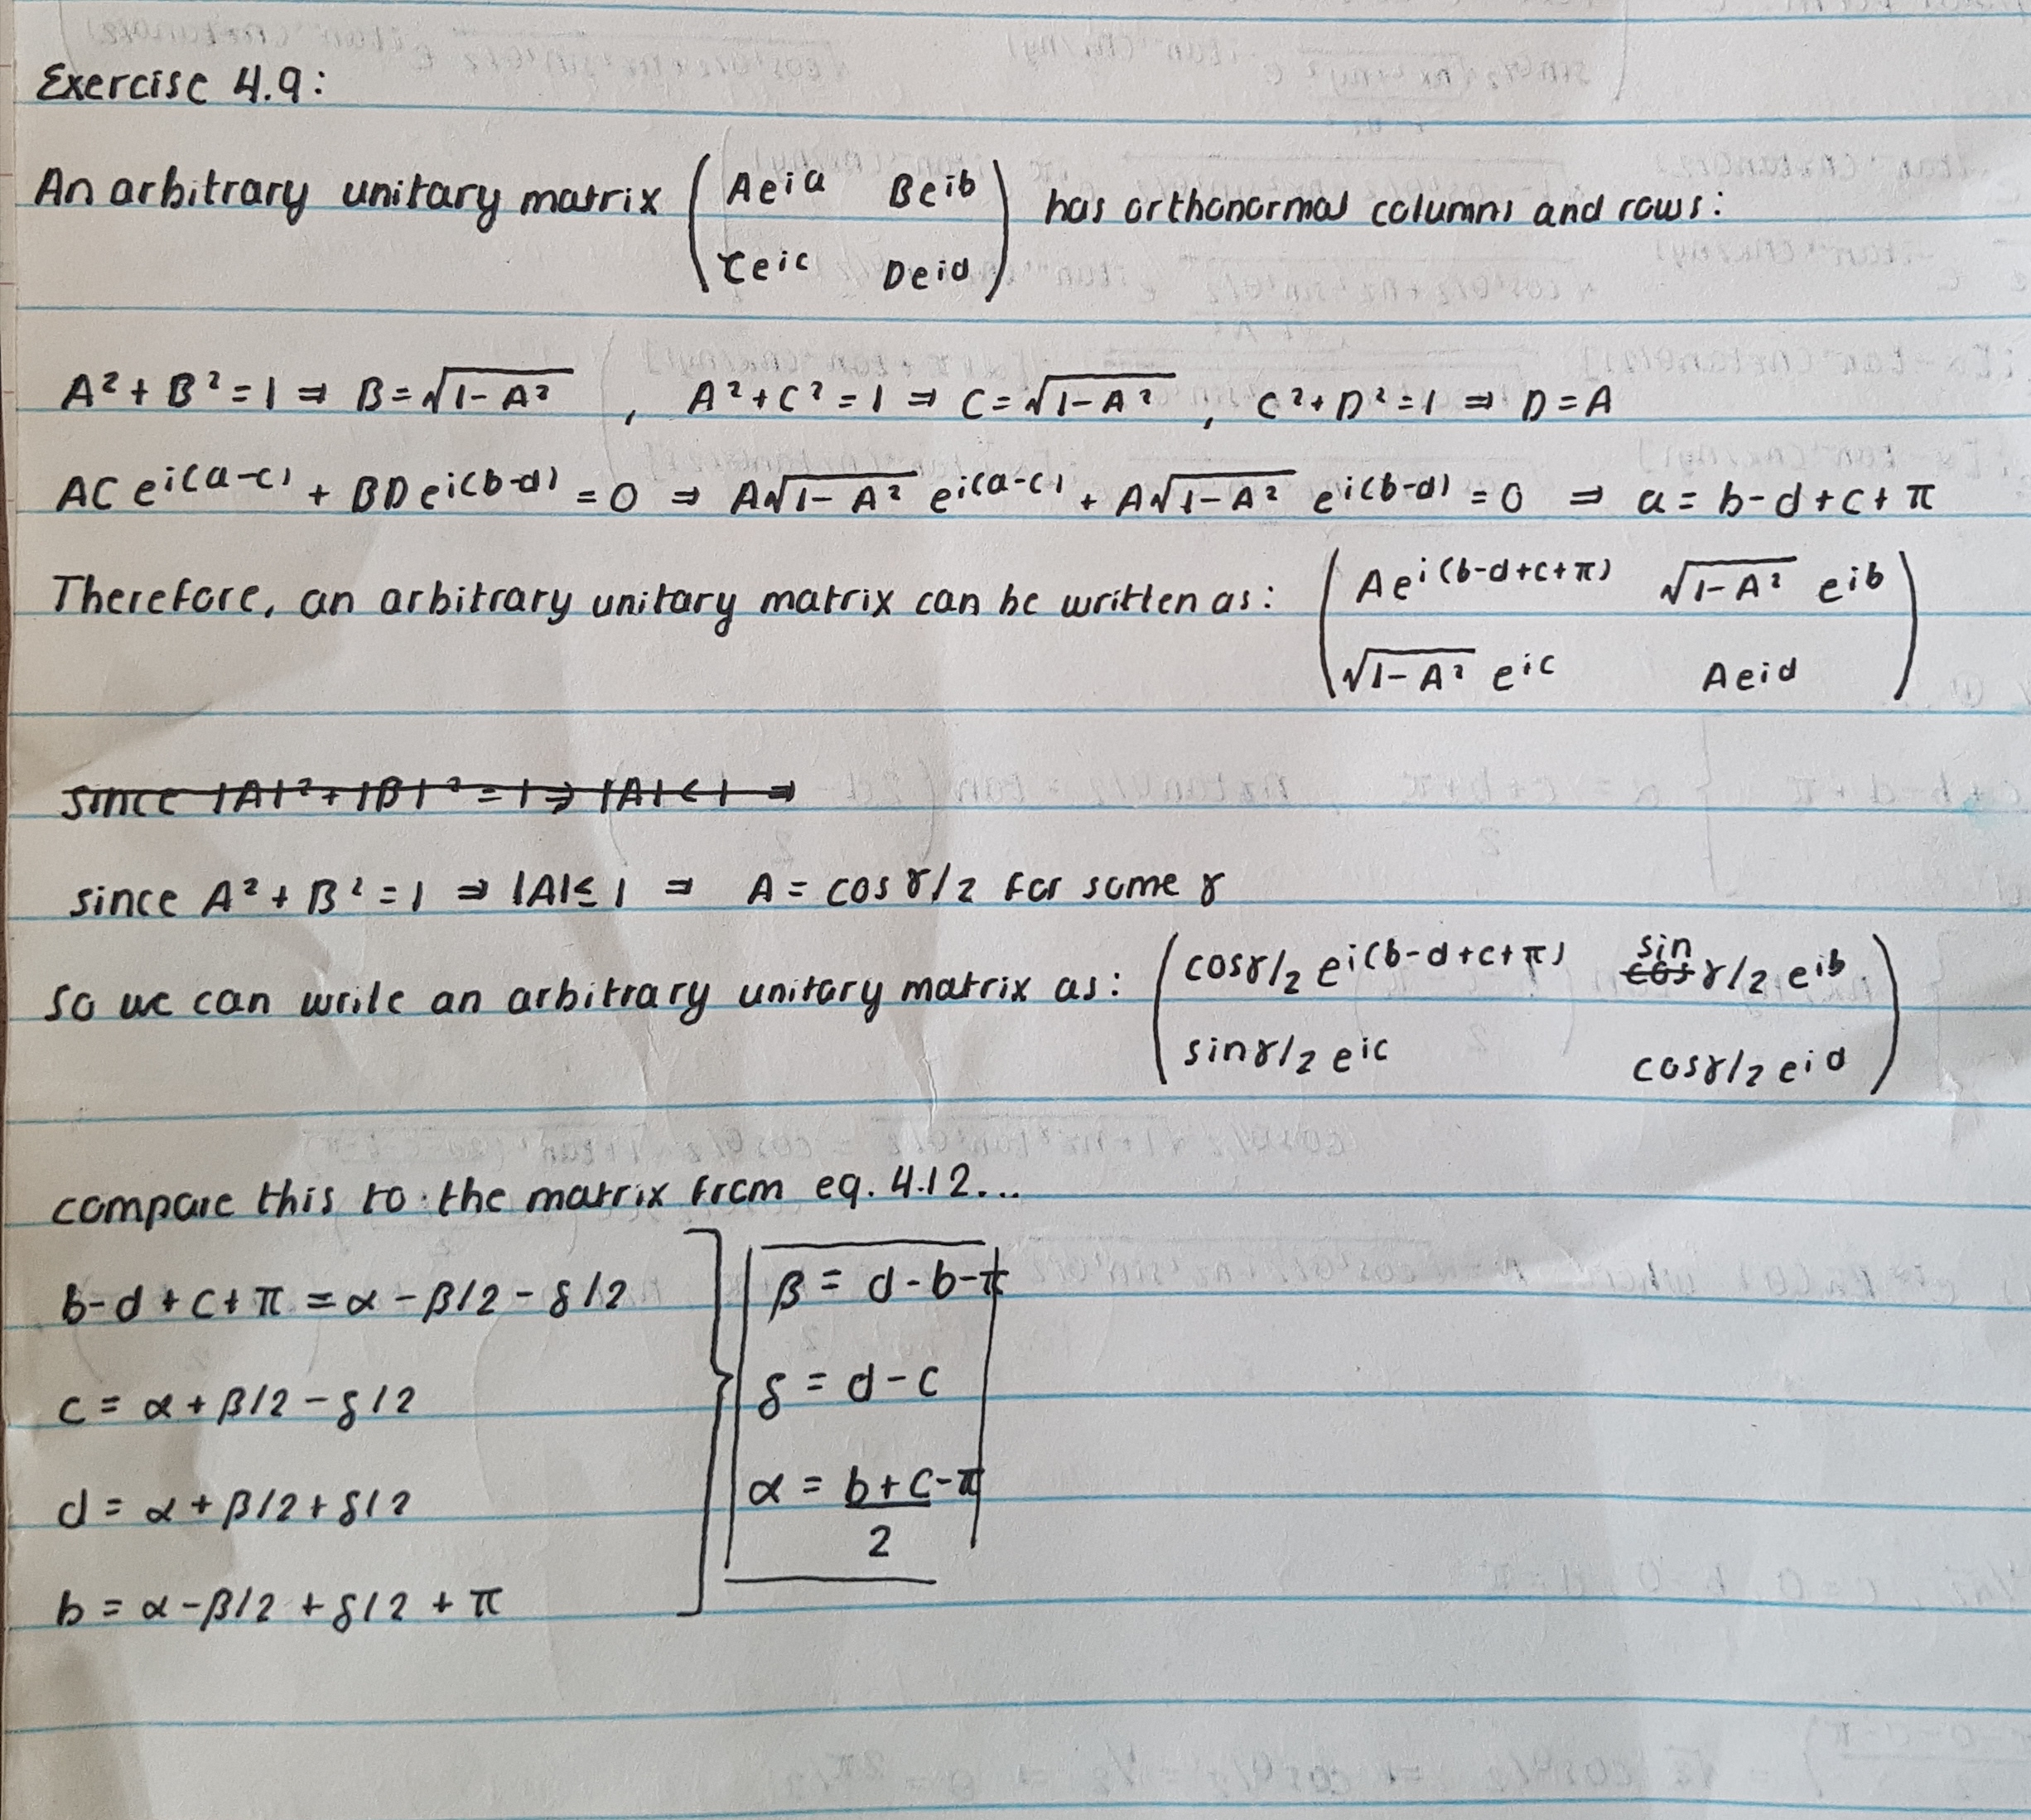 Exercise 4.9:
An arbitrary unitary matrix ( Ae^{ia} Be^{ib} ; Ce^{ic} De^{id} ) has orthonormal columns and rows:
A² + B² = 1 ⇒ B = √(1-A²) , A² + C² = 1 ⇒ C = √(1-A²) , C² + D² = 1 ⇒ D = A
AC e^{i(a-c)} + BD e^{i(b-d)} = 0 ⇒ A√(1-A²) e^{i(a-c)} + A√(1-A²) e^{i(b-d)} = 0 ⇒ a = b-d+c+π
Therefore, an arbitrary unitary matrix can be written as: ( Ae^{i(b-d+c+π)} √(1-A²) e^{ib} ; √(1-A²) e^{ic} Ae^{id} )
since |A|² + |B|² = 1 ⇒ |A| < 1 ⇒
since A² + B² = 1 ⇒ |A| ≤ 1 ⇒ A = cos γ/2 for some γ
So we can write an arbitrary unitary matrix as: ( cosγ/2 e^{i(b-d+c+π)} sin cos γ/2 e^{ib} ; sinγ/2 e^{ic} cosγ/2 e^{id} )
compare this to the matrix from eq. 4.12...
b-d+c+π = α - β/2 - δ/2
c = α + β/2 - δ/2
d = α + β/2 + δ/2
b = α - β/2 + δ/2 + π
β = d-b-π
δ = d-c
α = b+c-π
2